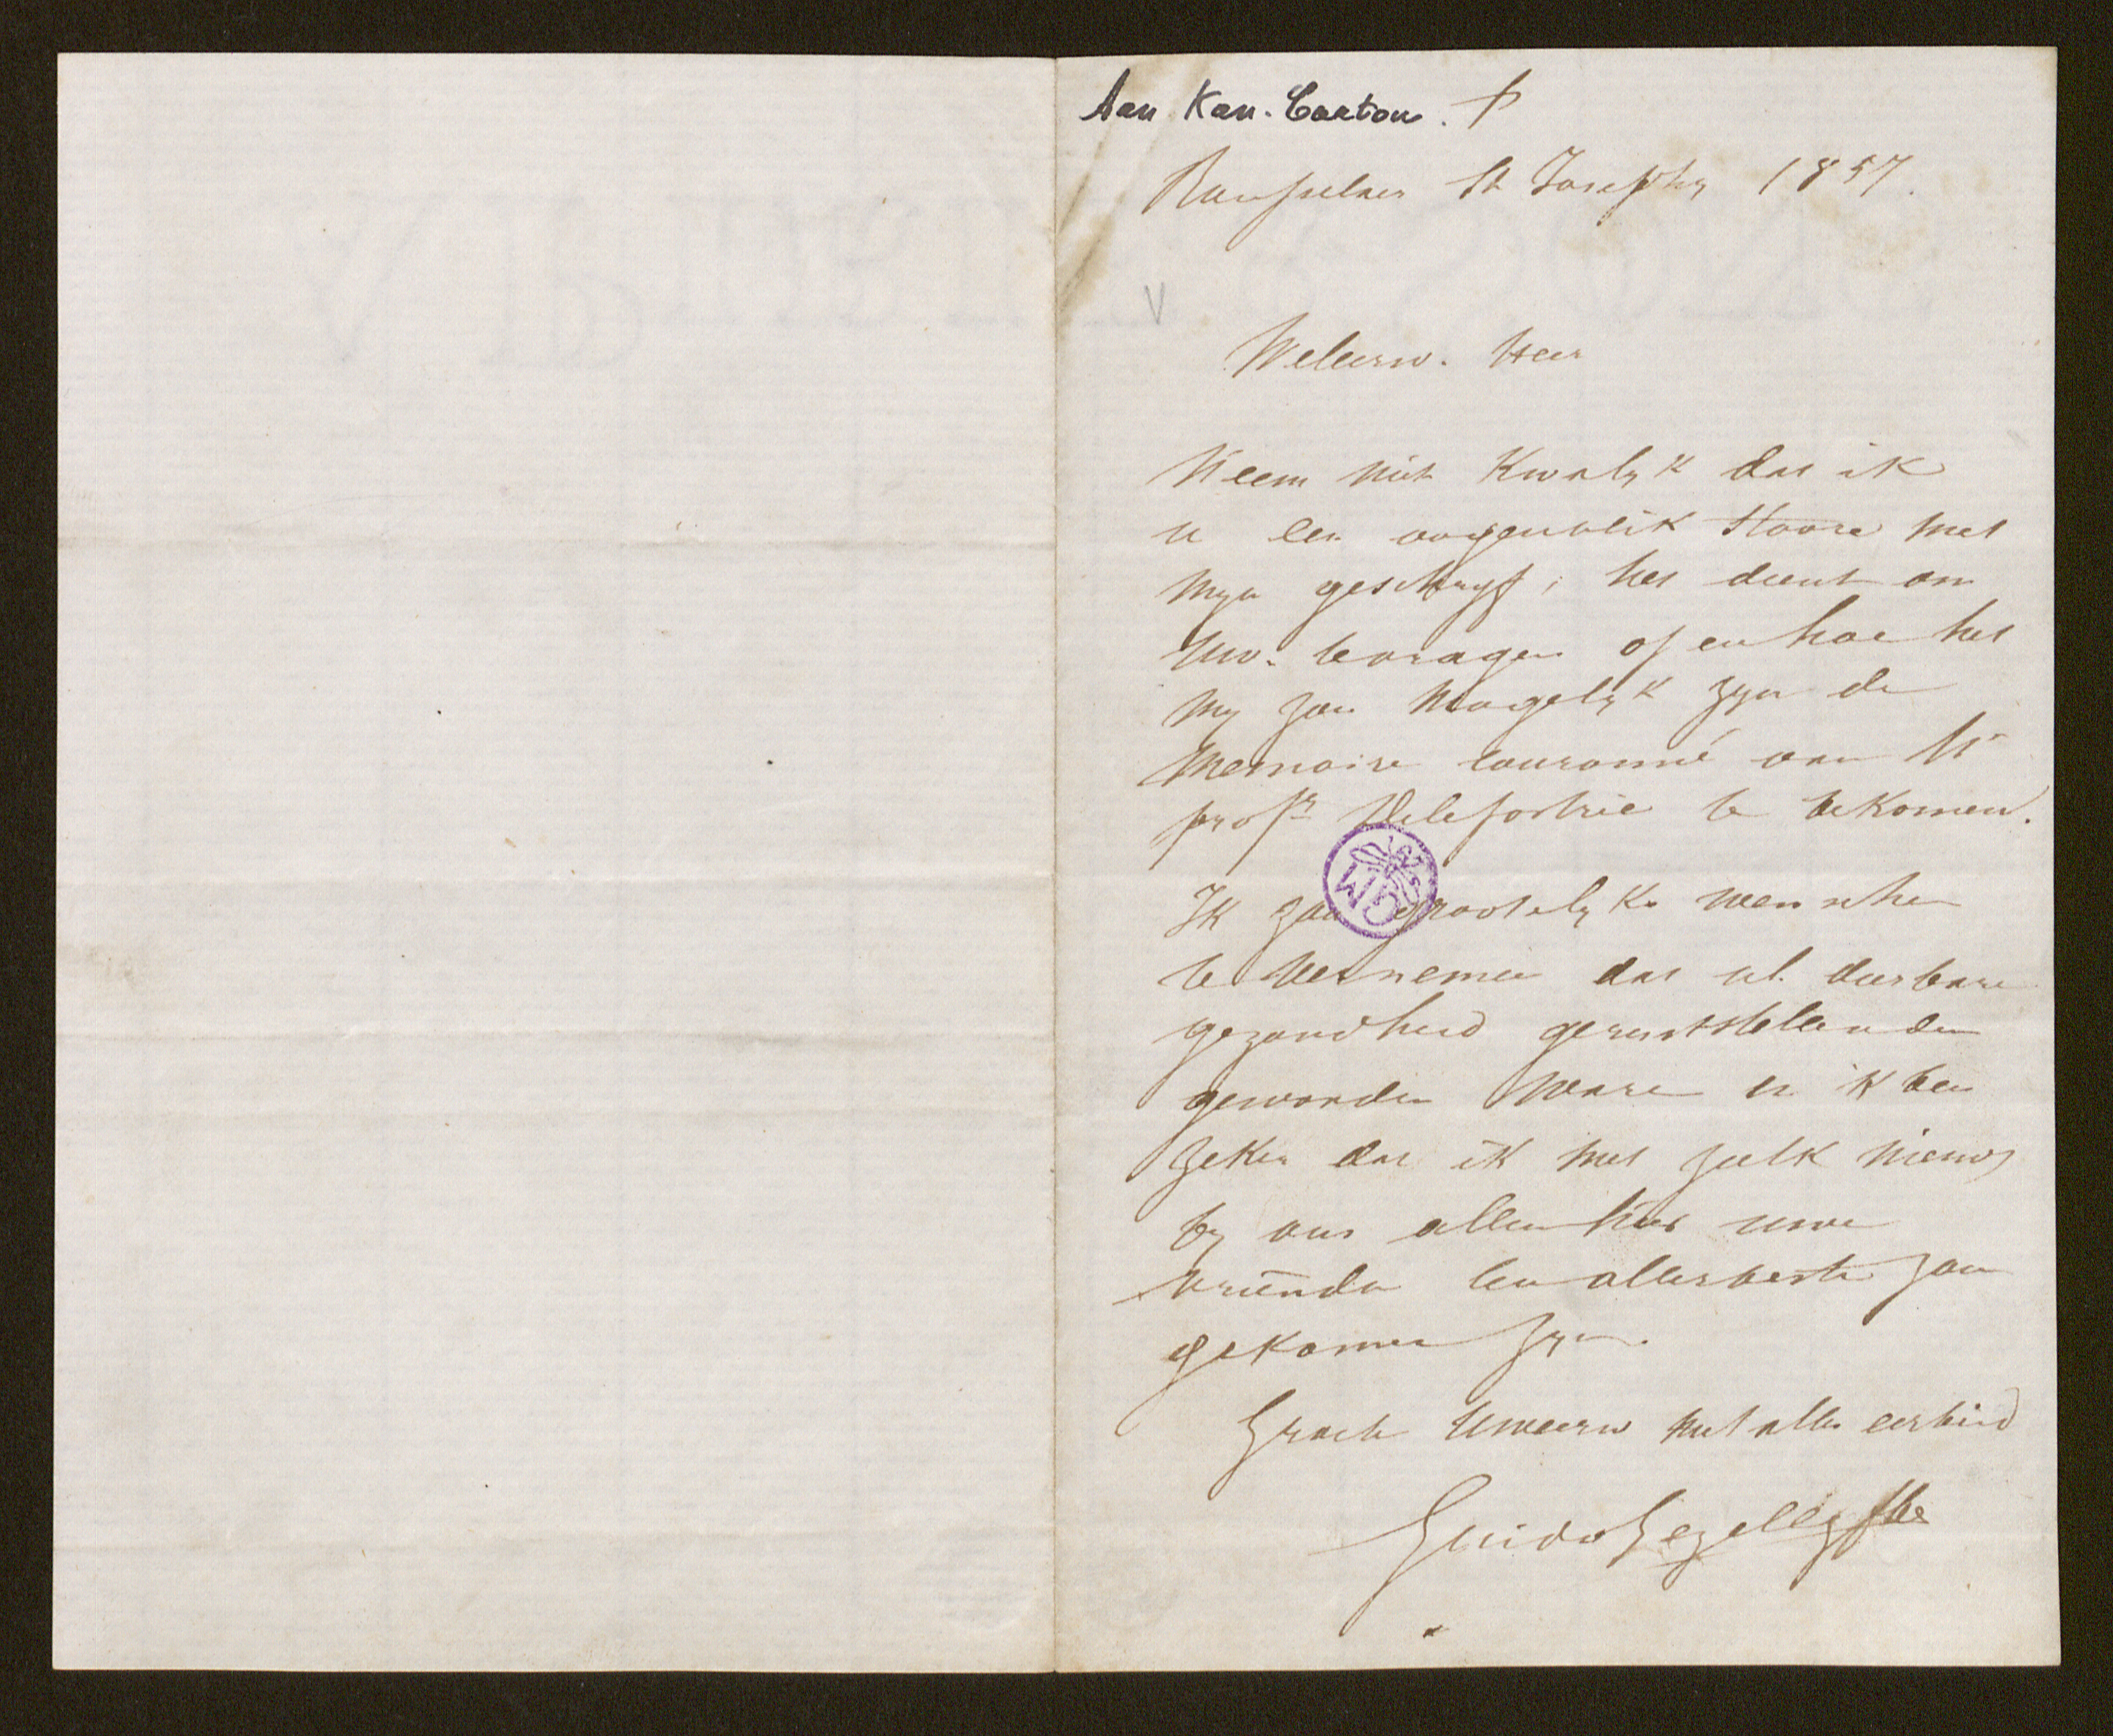 Aan Kan. Carton. †
Rousselaer St Josephs 1857.
V
Weleerw. Heer
Neem niet kwalyk dat ik
u een oogenblik stoore met
myn geschryf; het dient om
Uw. te vragen of en hoe het
my zou mogelyk zyn de
Memoire couronné van Hr
profr Delefortrie te bekomen.
Ik zou grootelyks wenschen
te vernemen dat ul. dierbare
gezondheid geruststellender
geworden ware en ik ben
zeker dat ik met zulk nieuws
by ons allen hier uwe
vrienden ten allerbeste zou
gekomen zyn.
Groete Uweerw met alle eerbied
Guido Gezelle pbr